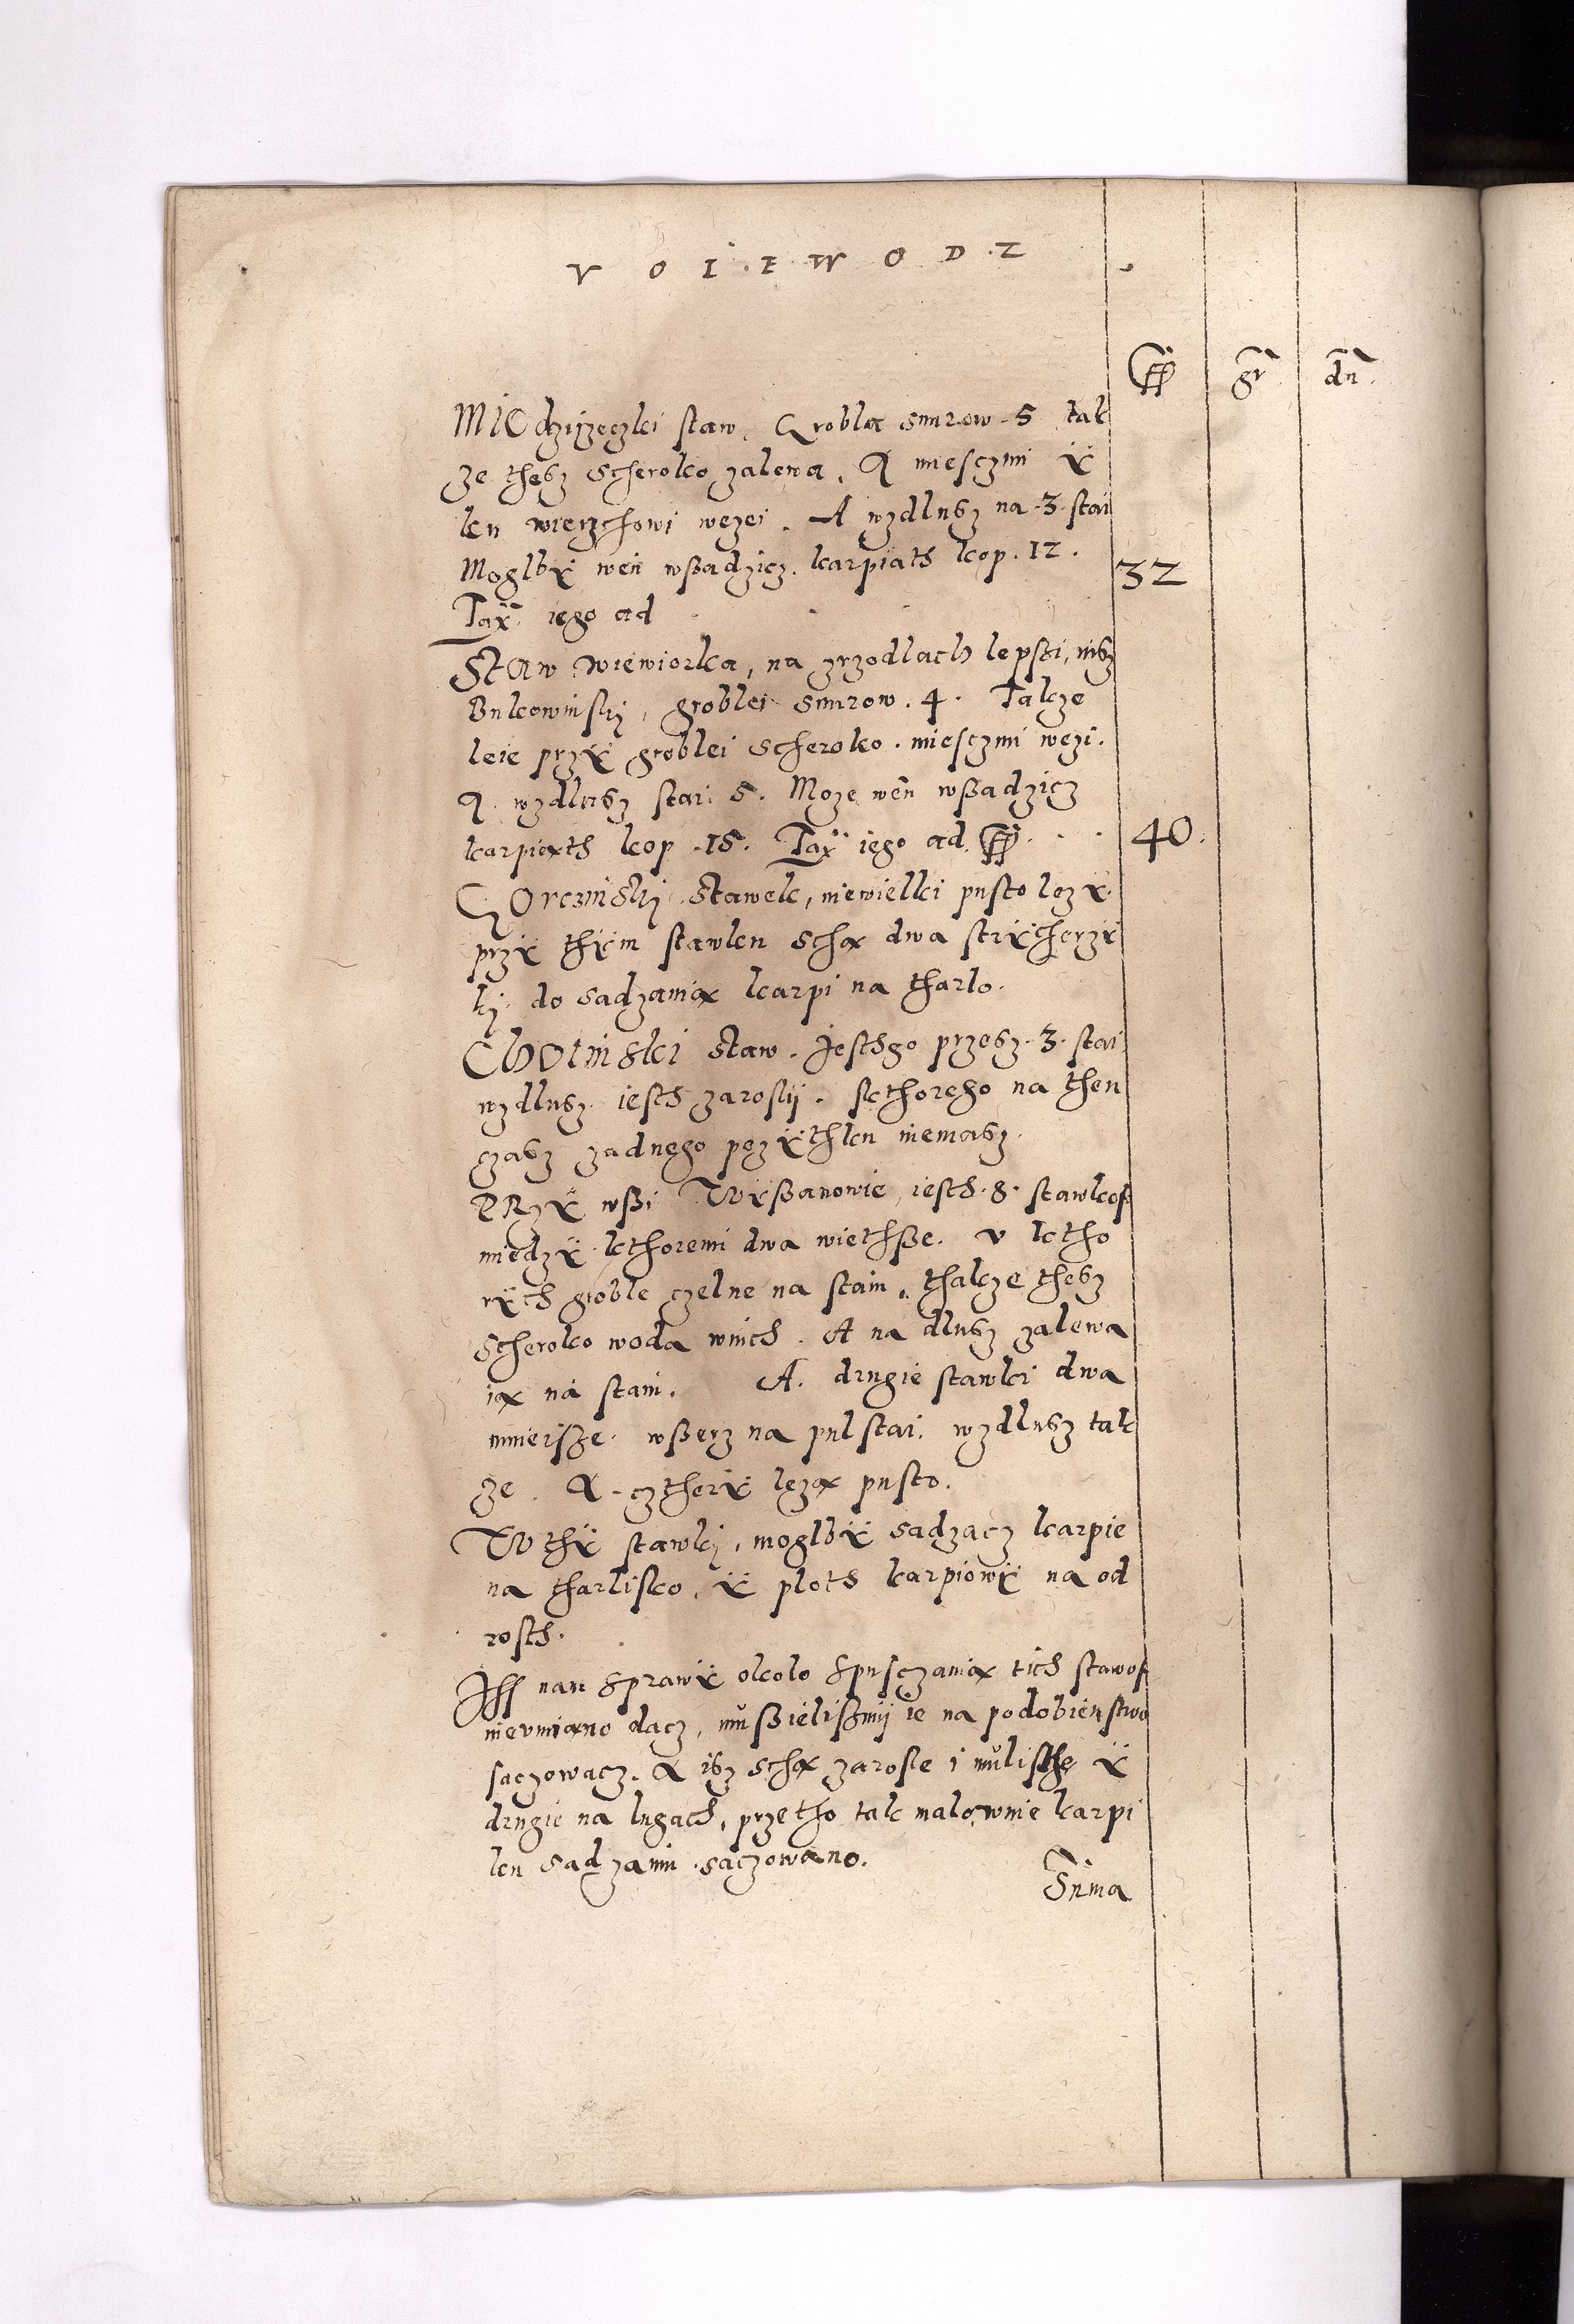 VOIEWODZ
ffl gr dn.
MIEdzirzeczki staw. Grobla snurow 5 tak
ze thesz scheroko zalewa. A miesczmi ÿ
ku wierzchowi wezei. A wzdlusz na .3. stai
Moglbÿ wen wßadzicz. karpiath kop. 12. 32
Tax. iego ad
Staw wiewiorka, na zrzodlach lepßi, nisz
Bukowinsky, groblei snurow. 4. Takze
leie przÿ groblei scheroko. miesczmi wezi.
A. wzdlusz stai 5. Moze wen wßadzicz
karpiath kop .15. Tax iego ad. ffl . . . 40.
GOrczinsky stawek, niewielki pusto lezÿ.
przÿ thÿm stawku scha dwa strÿcherzÿ
ky. do sadzania karpi na tharlo.
CHOinski staw. Jesthgo przesz .3. stai
wzdlusz. iesth zarosly. kthorego na then
czasz zadnego pozÿthku niemasz.
PRzÿ wßi Wÿßanowie, iesth .8. stawkof
miedzÿ kthoremi dwa wiethße. v ktho
rÿch groble czelne na staiu. thakze thesz
scheroko woda wnich. A na dlusz zalewa
ia na staiu. A. drugie stawki dwa
mnieisze. wßerz na pulstai. wzdlusz tak
ze. A. cztherÿ leza pusto.
W thÿ stawky, moglbÿ sadzacz karpie
na tharlisko. ÿ ploth karpiowÿ na od
rosth.
Iss nam sprawÿ okolo spusczania tich stawof
nieumiano dacz, mußielißmy ie na podobienstwo
saczowacz. A isz scha zarosle i muliste ÿ
drugie na lugach, przetho tak malownie karpi
ku sadzaniu saczowano.
Suma